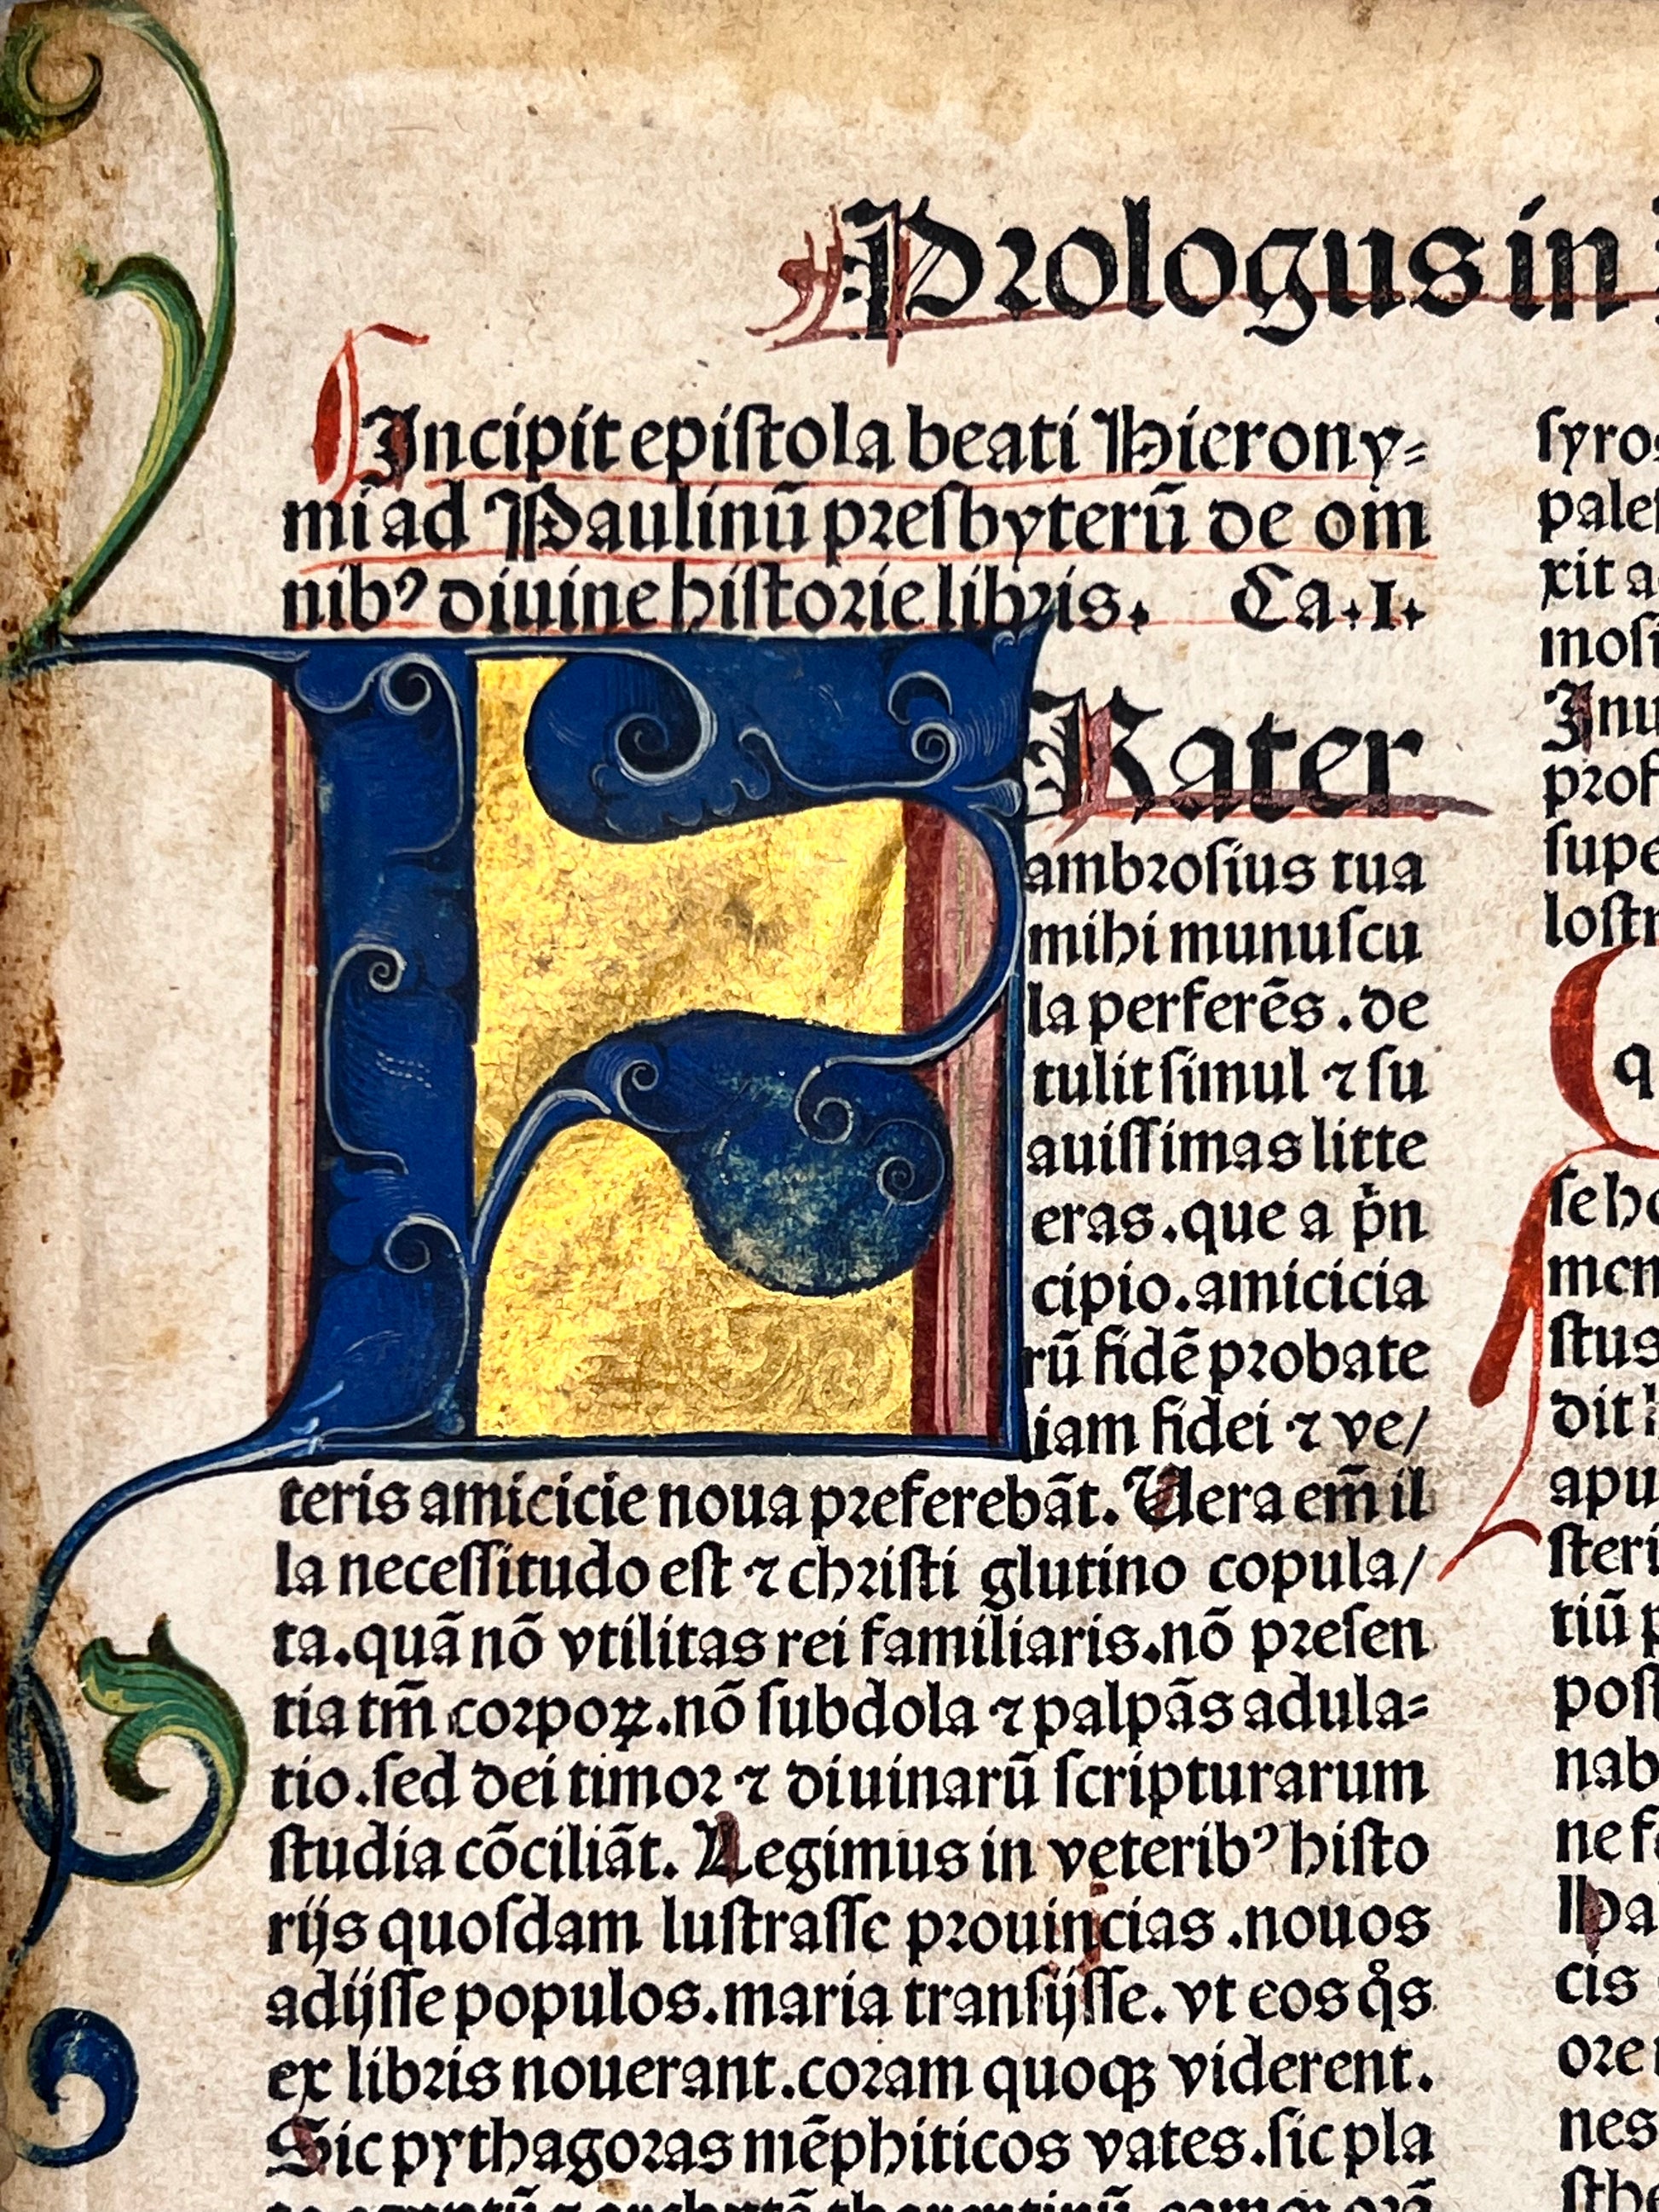 Prologus in
Incipit epistola beati Hierony=
mi ad Paulinū presbyterū de om
nibꝰ diuine historie libris. Ca.I.
FRater
ambrosius tua
mihi munuscu
la perferēs. de
tulit simul ⁊ su
auissimas litte
eras. que a pͥn
cipio. amicicia
rū fidē probate
iam fidei ⁊ ve/
teris amicicie noua preferebāt. Uera em̄ il
la necessitudo est ⁊ christi glutino copula/
ta. quā nō vtilitas rei familiaris. nō presen
tia tm̄ corpoꝝ. nō subdola ⁊ palpās adula=
tio. sed dei timor ⁊ diuinarū scripturarum
studia cōciliāt. Legimus in veteribꝰ histo
rijs quosdam lustrasse prouincias. nouos
adijsse populos. maria transijsse. vt eos qͦs
ex libris nouerant. coram quoqꝫ viderent.
Sic pythagoras mēphiticos vates. sic pla
syros
pales
xit a
mosi
Inu
prof
supe
lostr
q
se ho
men
stus
dit
apu
steri
tiū p
post
nab
ne fe
Pa
cis
ore
nes